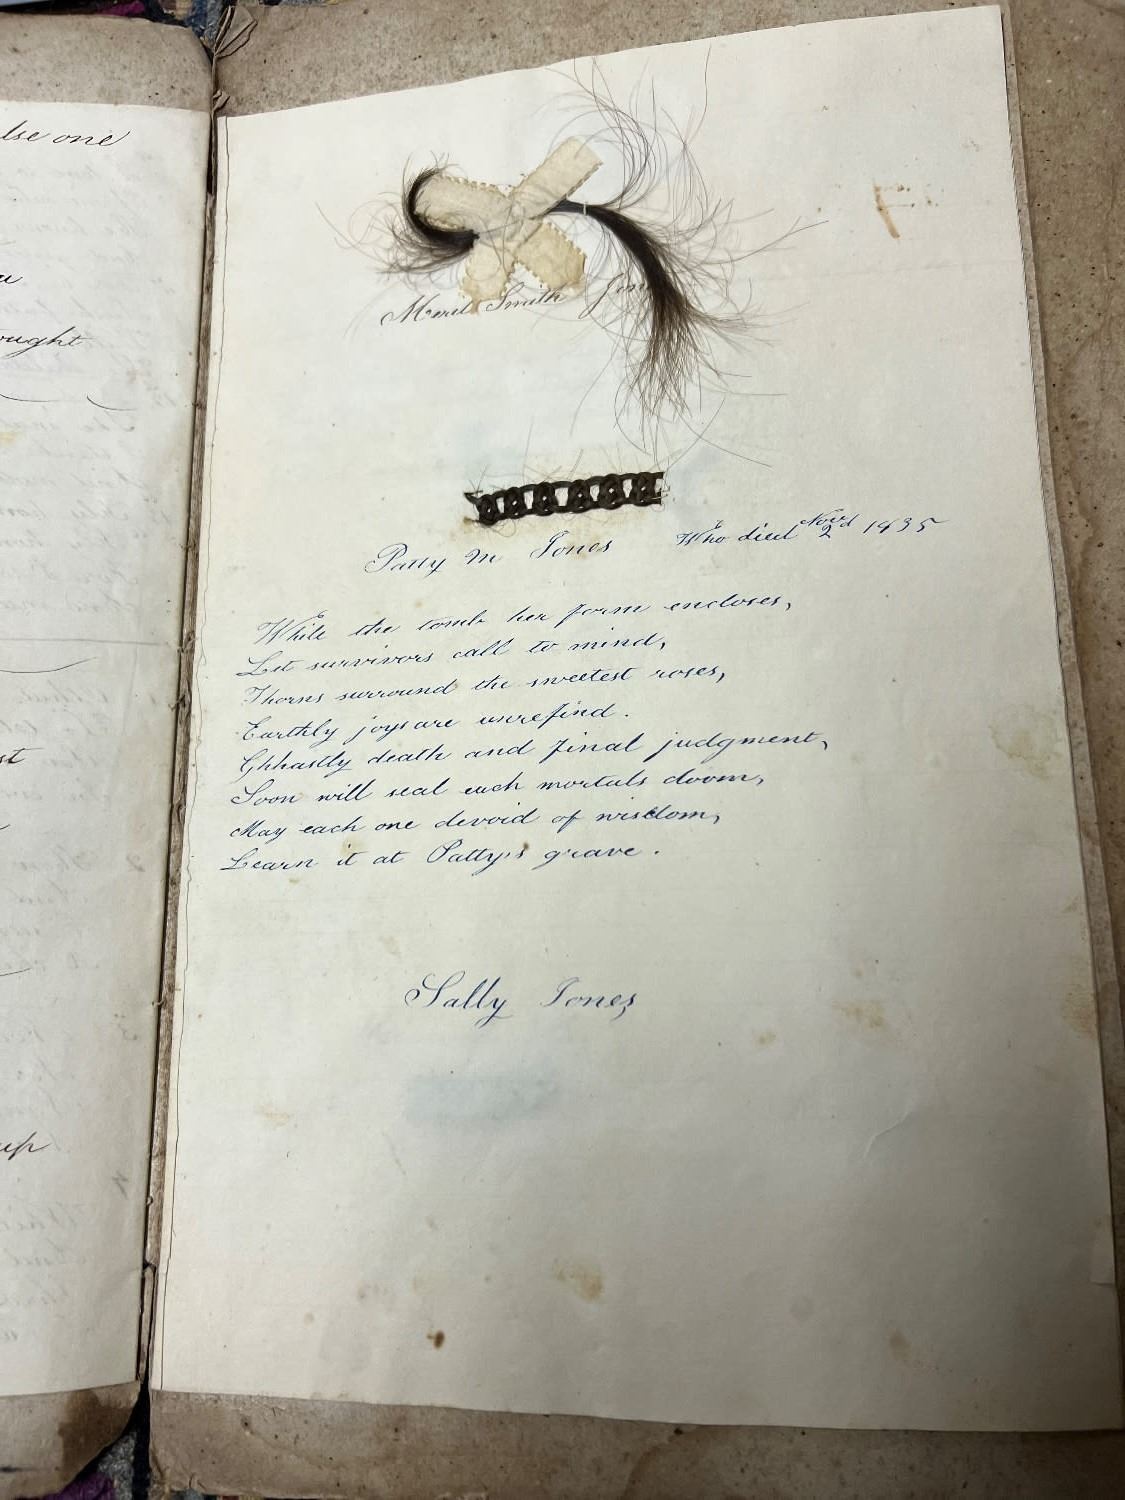 lse one
ought
st
up
Smith
Patty M Jones Who died Novr 2d 1835
While the tomb her form encloses,
Let survivors call to mind,
Thorns surround the sweetest roses,
Earthly joys are unrefind.
Ghhastly death and final judgment,
Soon will seal each mortals doom,
May each one devoid of wisdom,
Learn it at Patty,s grave.
Sally Jones